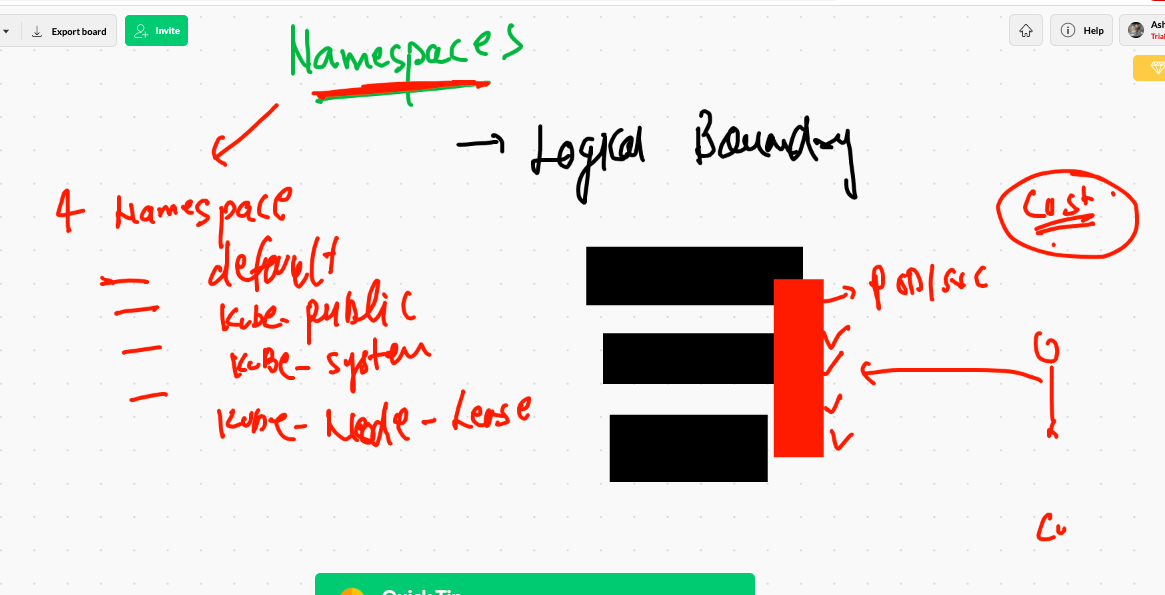 Export board
Invite
Help
Ash
Trial
Namespaces
→ Logical Boundary
4 Namespace
default
Kube-public
KuBe-system
Kube-Node-Lease
Cost
POD/svc
Cu
Quick Tip